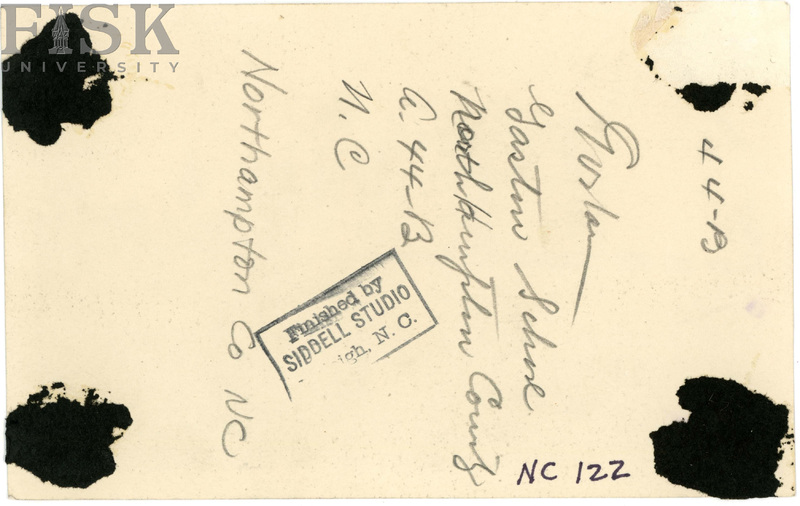 FISK
UNIVERSITY
44-B
Gaston School
Northhampton County
A. 44-B
N. C
Northampton Co NC
Finished by
SIDDELL STUDIO
igh, N. C.
NC 122